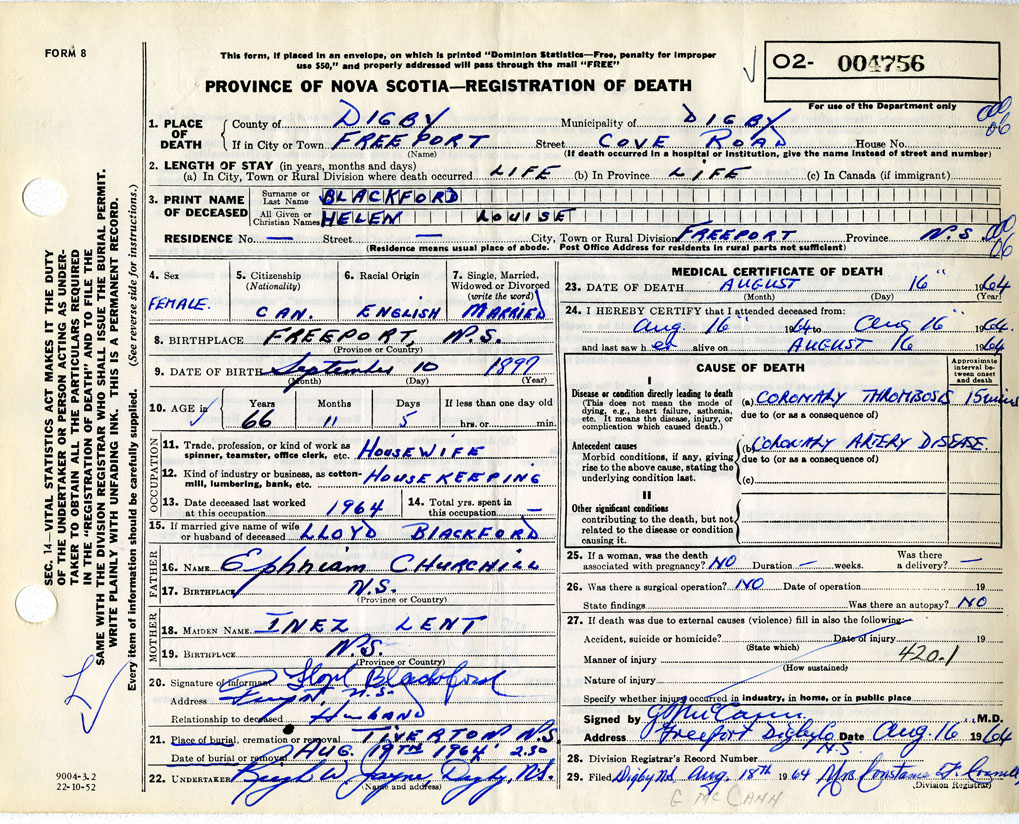 FORM 8
This form, if placed in an envelope, on which is printed "Dominion Statistics—Free, penalty for improper
use $50," and properly addressed will pass through the mail "FREE"
PROVINCE OF NOVA SCOTIA—REGISTRATION OF DEATH
02- 004756
For use of the Department only
SEC. 14—VITAL STATISTICS ACT MAKES IT THE DUTY
OF THE UNDERTAKER OR PERSON ACTING AS UNDER-
TAKER TO OBTAIN ALL THE PARTICULARS REQUIRED
IN THE "REGISTRATION OF DEATH" AND TO FILE THE
SAME WITH THE DIVISION REGISTRAR WHO SHALL ISSUE THE BURIAL PERMIT.
WRITE PLAINLY WITH UNFADING INK. THIS IS A PERMANENT RECORD.
Every item of information should be carefully supplied. (See reverse side for instructions.)
1. PLACE OF DEATH
County of DIGBY Municipality of DIGBY
If in City or Town FREEPORT Street COVE ROAD House No.
(Name) (If death occurred in a hospital or institution, give the name instead of street and number)
06
2. LENGTH OF STAY (in years, months and days)
(a) In City, Town or Rural Division where death occurred LIFE (b) In Province LIFE (c) In Canada (if immigrant)
3. PRINT NAME OF DECEASED
Surname or Last Name BLACKFORD
All Given or Christian Names HELEN LOUISE
RESIDENCE No. — Street — City, Town or Rural Division FREEPORT Province N.S.
(Residence means usual place of abode. Post Office Address for residents in rural parts not sufficient)
06
4. Sex
FEMALE.
5. Citizenship
(Nationality)
CAN.
6. Racial Origin
ENGLISH
7. Single, Married,
Widowed or Divorced
(write the word)
MARRIED
8. BIRTHPLACE FREEPORT, N.S.
(Province or Country)
9. DATE OF BIRTH September 10 1897
(Month) (Day) (Year)
10. AGE in
Years Months Days If less than one day old
66 11 5 hrs. or min.
OCCUPATION
11. Trade, profession, or kind of work as
spinner, teamster, office clerk, etc. HOUSEWIFE
12. Kind of industry or business, as cotton-
mill, lumbering, bank, etc. HOUSEKEEPING
13. Date deceased last worked
at this occupation 1964
14. Total yrs. spent in
this occupation —
15. If married give name of wife
or husband of deceased LLOYD BLACKFORD
FATHER
16. NAME Ephriam CHURCHILL
17. BIRTHPLACE N.S.
(Province or Country)
MOTHER
18. MAIDEN NAME INEZ LENT
19. BIRTHPLACE N.S.
(Province or Country)
20. Signature of informant Lloyd Blackford
Address N.S.
Relationship to deceased HUSBAND
21. Place of burial, cremation or removal TIVERTON N.S.
Date of burial or removal AUG. 19TH 1964 2.30
22. UNDERTAKER W. Jayne Digby, N.S.
(Name and address)
9004-3.2
22-10-52
MEDICAL CERTIFICATE OF DEATH
23. DATE OF DEATH AUGUST 16" 1964
(Month) (Day) (Year)
24. I HEREBY CERTIFY that I attended deceased from:
Aug 16" 1964 to Aug 16" 1964.
and last saw her alive on AUGUST 16 1964
CAUSE OF DEATH
Approximate
interval be-
tween onset
and death
I
Disease or condition directly leading to death
(This does not mean the mode of
dying, e.g., heart failure, asthenia,
etc. It means the disease, injury, or
complication which caused death.)
(a) CORONARY THROMBOSIS 15 mins
due to (or as a consequence of)
Antecedent causes
Morbid conditions, if any, giving
rise to the above cause, stating the
underlying condition last.
(b) CORONARY ARTERY DISEASE.
due to (or as a consequence of)
(c)
II
Other significant conditions
contributing to the death, but not
related to the disease or condition
causing it.
25. If a woman, was the death
associated with pregnancy? NO Duration — weeks. Was there
a delivery? —
26. Was there a surgical operation? NO Date of operation 19
State findings Was there an autopsy? NO
27. If death was due to external causes (violence) fill in also the following:
Accident, suicide or homicide? Date of injury 19
(State which)
Manner of injury 420.1
(How sustained)
Nature of injury
Specify whether injury occurred in industry, in home, or in public place
Signed by G McCann M.D.
Address Freeport Digby Co N.S. Date Aug. 16 1964
28. Division Registrar's Record Number
29. Filed Digby N.S. Aug. 18th 1964 Mrs Constance F.
(Division Registrar)
G McCann